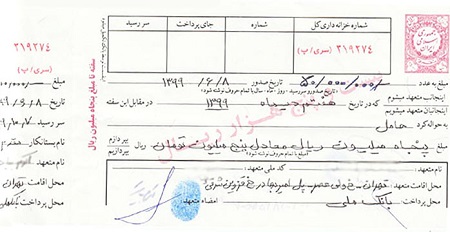 شماره خزانه داری کل
شماره
جای پرداخت
سررسید
۳۱۹۲۷۴ (سری/پ)
جمهوری اسلامی ایران
۳۱۹۲۷۴
(سری/پ)
سفته تا مبلغ پنجاه میلیون ریال
مبلغ به عدد ۵۰/۰۰۰/۰۰۰ تاریخ صدور ۱۳۹۹/۶/۸
تاریخ صدور و سررسید: روز - ماه - سال با تمام حروف نوشته شود
اینجانب متعهد میشوم
اینجانبان متعهد میشویم
که در تاریخ هفتم دیماه ۱۳۹۹ در مقابل این سفته
به حواله کرد حامل
مبلغ پنجاه میلیون ریال معادل پنج میلیون تومان بپردازم
بپردازیم
(مبلغ با تمام حروف نوشته شود)
نام متعهد: کد ملی متعهد:
محل اقامت متعهد: تهران
محل پرداخت: بانک ملی امضاء متعهد:
مبلغ
تاریخ
نام متعهد
نام بستانکار
محل اقامت تهران
محل پرداخت بانک